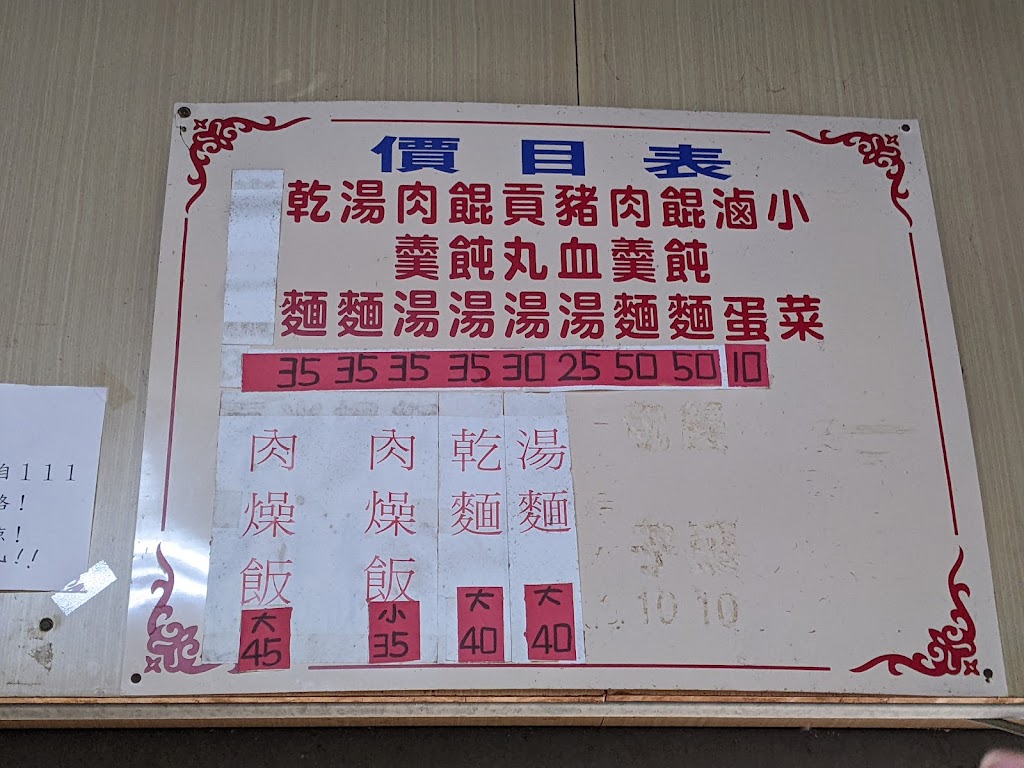 價目表
乾湯肉餛貢豬肉餛滷小
羹飩丸血羹飩
麵麵湯湯湯湯麵麵蛋菜
35 35 35 35 30 25 50 50 10
肉燥飯 大 45
肉燥飯 小 35
乾麵 大 40
湯麵 大 40
10 10
自111
!
!
!!